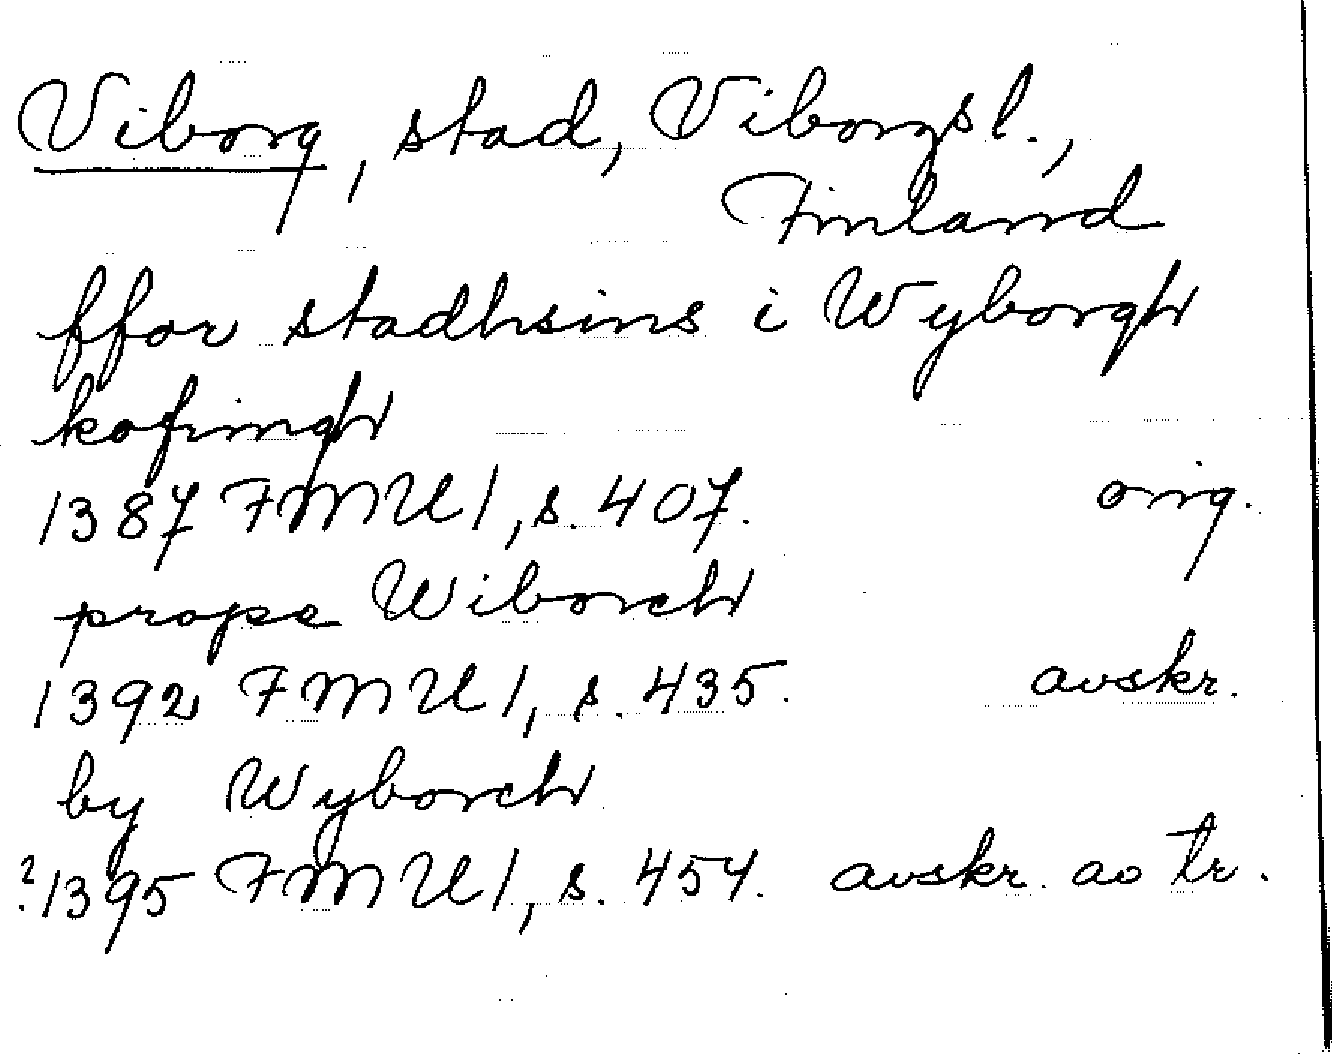 Viborg, stad, Viborgsl.,
Finland
ffor stadhsins i Wyborgh
kofingh
1387 FMU 1, s. 407. orig.
prope Wiborch
1392 FMU 1, s. 435. avskr.
by Wyborch
?1395 FMU 1, s. 454. avskr. av tr.